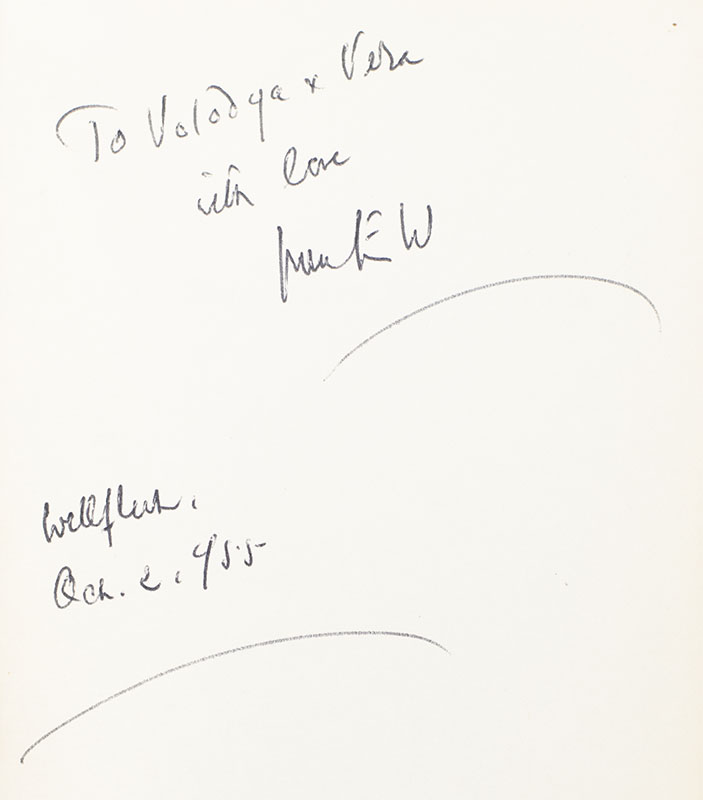 To Volodya & Vera
with love
from E W
Wellfleet.
Oct. 2, 1955